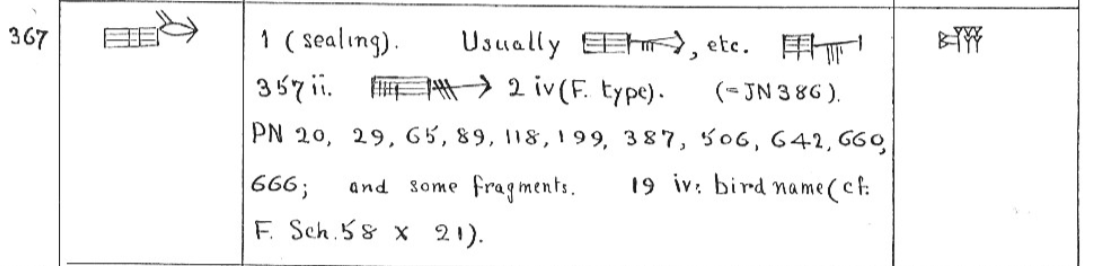 367 1 (sealing). Usually , etc.
357 ii. 2 iv (F. type). (= JN 386).
PN 20, 29, 65, 89, 118, 199, 387, 506, 642, 660,
666; and some fragments. 19 iv: bird name (cf.
F. Sch. 58 x 21).